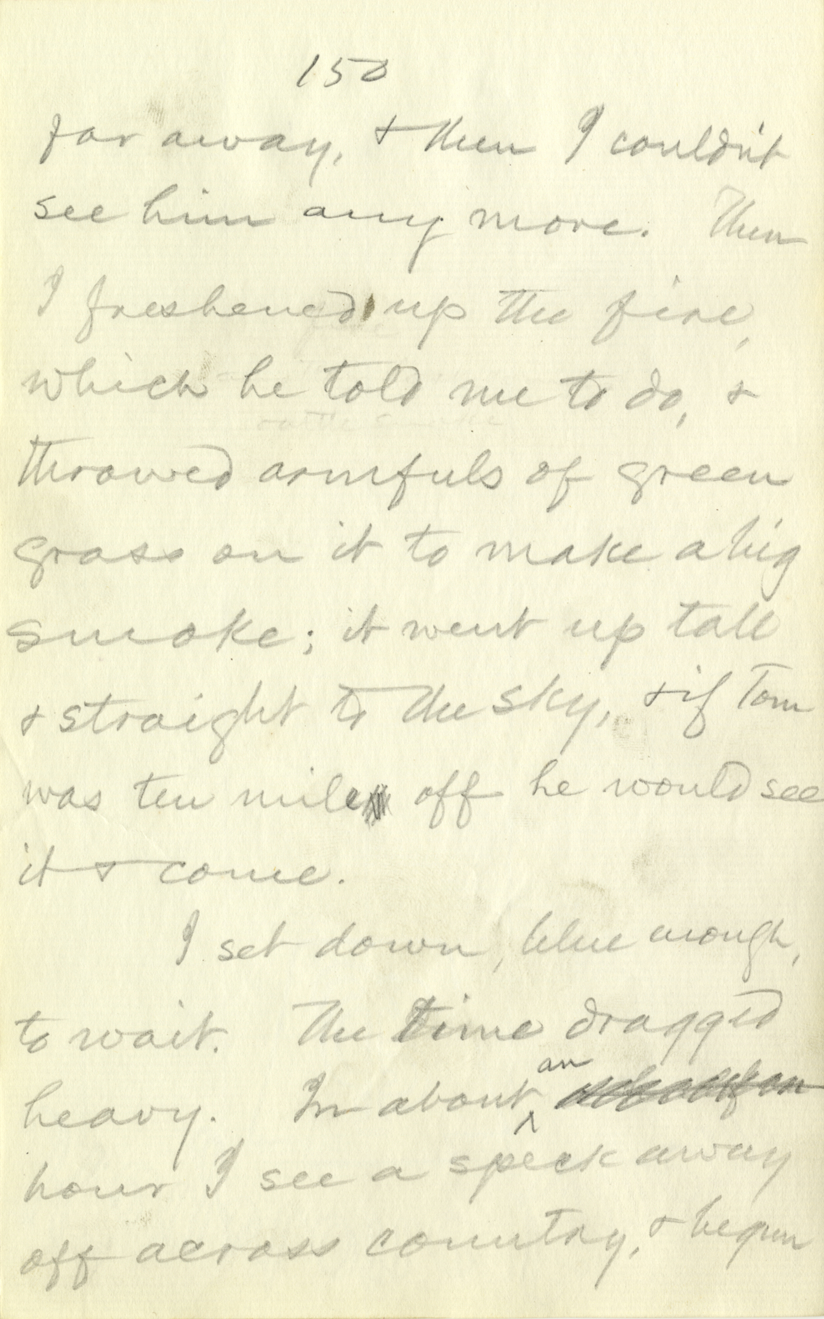 150
far away, & then I couldn't
see him any more. Then
I freshened up the fire,
which he told me to do, &
throwed armfuls of green
grass on it to make a big
smoke; it went up tall
& straight to the sky, & if Tom
was ten mile off he would see
it & come.
I set down, blue enough,
to wait. The time dragged
heavy. In about an
hour I see a speck away
off across country, & begun